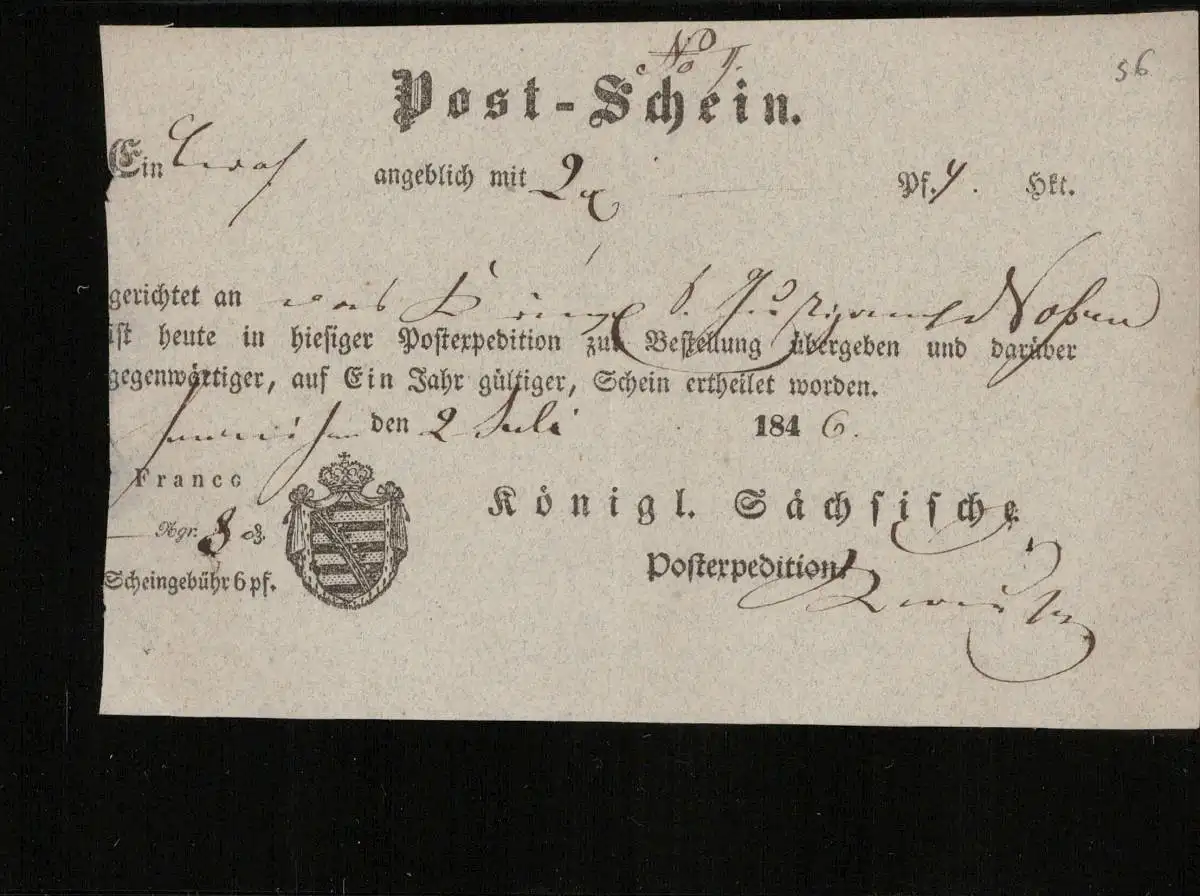 56
No
Post-Schein.
Ein angeblich mit 2 Pf. 4. Hkt.
gerichtet an das König. S. Justizamt Noßen
ist heute in hiesiger Postexpedition zur Bestellung übergeben und darüber
gegenwärtiger, auf Ein Jahr gültiger, Schein ertheilet worden.
den 2 Juli 1846.
Franco
Ngr. 8 ₰.
Scheingebühr 6 pf.
Königl. Sächsische
Postexpedition.